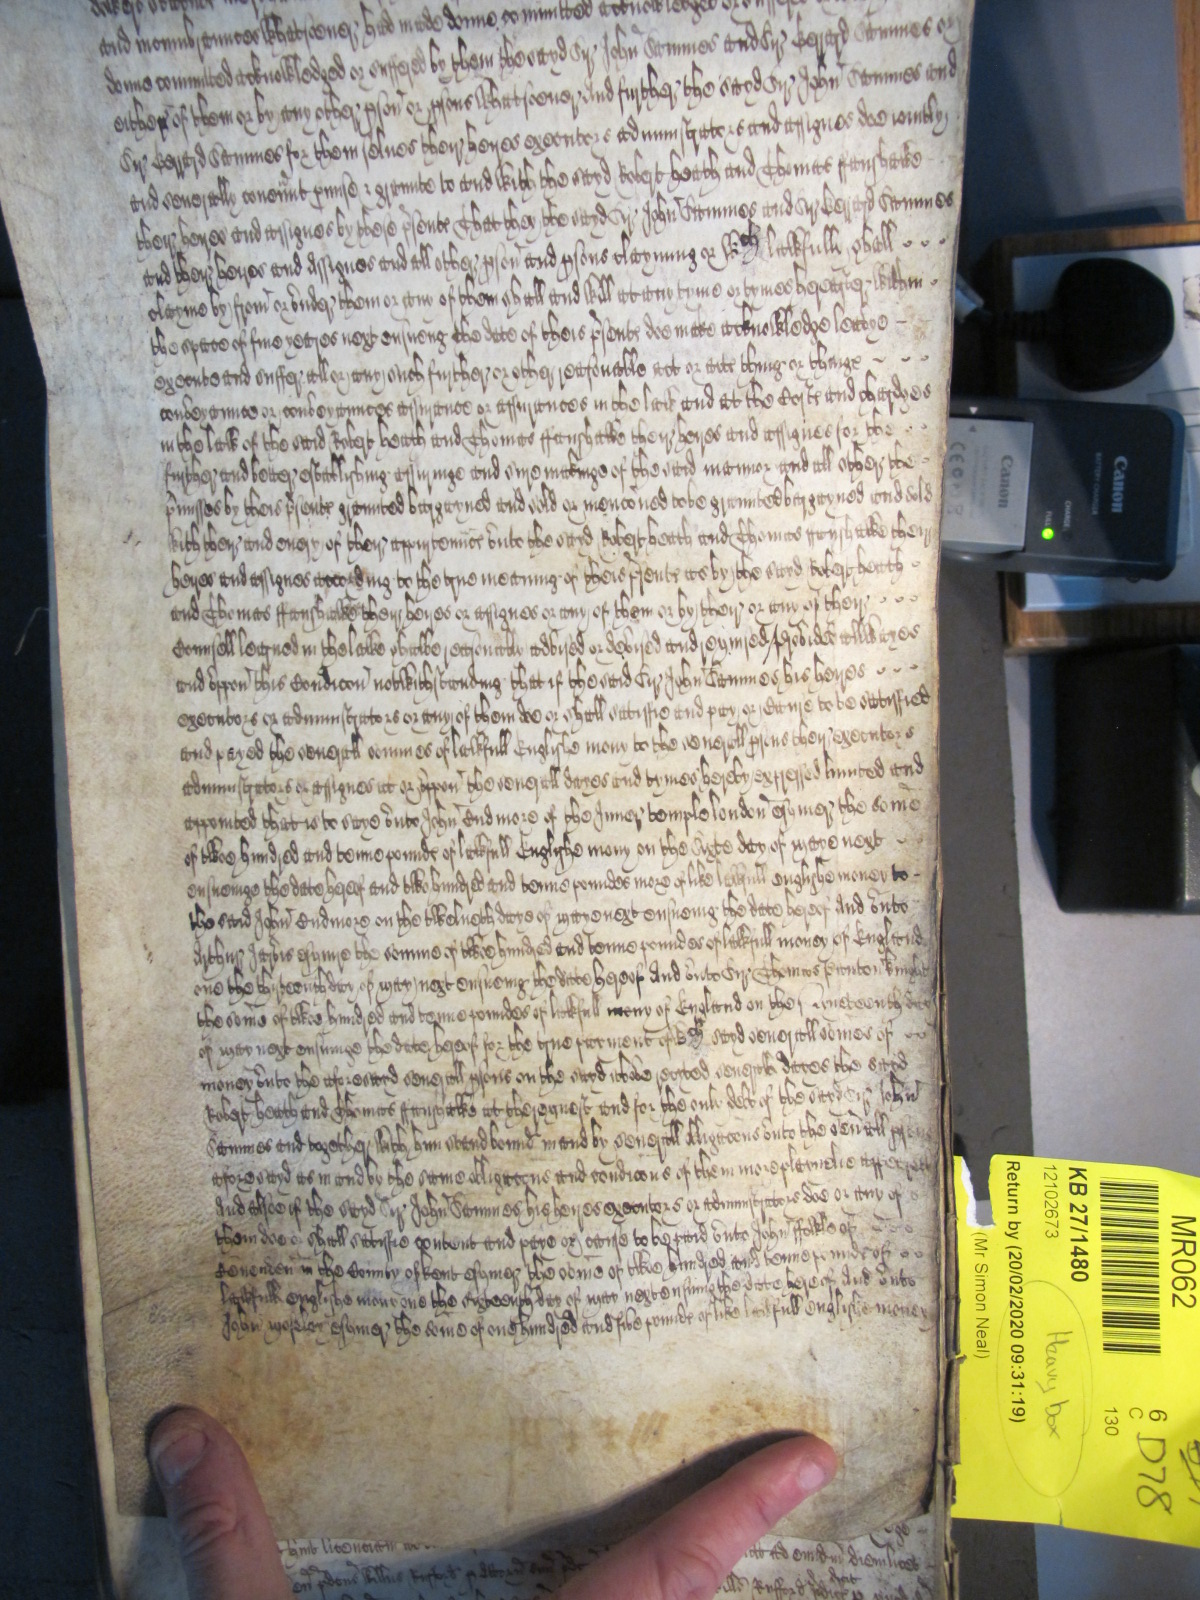 and incumbrances whatsoever had made donne committed acknowledged or suffered
donne committed acknowledged or suffered by them the sayd Sr John Sammes and Sr Gerrard Sammes or
either of them or by any other pson or psons whatsoever And further the sayd Sr John Sammes and
Sr Gerrard Sammes for them selves their heyres executors administrators and assignes doe ioyntly
and severally covennt pmise & graunte to and with the sayd Robert heath and Thomas ffanshawe
their heyres and assignes by these psents That they the sayd Sr John Sammes and Sr Gerrard Sammes
and their heyres and Assignes and all other pson and psons clayming or wch lawfully shall
clayme by from or under them or any of them shall and will at any tyme or tymes hereafter within
the space of five yeares next ensuing the date of theis psents doe make acknowledge leavye
execute and suffer all or any such further or other reasonable act or acts thing or things
conveyance or conveyances assurance or assurances in the lawe and at the Costs and chardges
in the lawe of the said Robert heath and Thomas ffanshawe their heyres and assignes for the
further and better establishing assuringe and sure makinge of the said mannor and all other the
pmisses by theis psents graunted bargayned and sold or menconed to be graunted bargayned and sold
with their and every of their appurtennces unto the sayd Robert heath and Thomas ffanshawe their
heyres and assignes according to the true meaning of theis psents as by the sayd Robert heath
and Thomas ffanshawe their heyres or assignes or any of them or by their or any of their
Counsell learned in the lawe shalbe reasonably advised or devised and required Provided allwayes
and uppon this Condicon notwithstanding that if the said Sr John Sammes his heyres
executors or administrators or any of them doe or shall satisfie and pay or cause to be satisfied
and payed the severall sommes of lawfull Englishe mony to the severall psons their executors
administrators or assignes at or uppon the severall dayes and tymes hereby expressed limited and
appointed that is to saye unto John Endmore of the Inner temple london esquier the some
of twoe hundred and tenne pounds of lawfull Englishe mony on the day of maye next
ensueinge the date hereof and two hundred and tenne poundes more of like lawfull englishe money to
the said John Endmore on the twelueth daye of may next ensueing the date hereof And unto
Arthur Jarvis esquire the somme of twoe hundred and tenne poundes of lawfull money of England
one the day of may next ensueing the date hereof And unto Sr Thomas knight
the some of twoe hundred and tenne poundes of lawfull mony of England on the Nineteenth day
of may next ensuinge the date hereof for the true payment of wch sayd severall somes of
money unto the aforesayd severall psons on the sayd above recited severall dayes the sayd
Robert heath and Thomas ffanshawe at the request and for the only debt of the sayd Sr John
Sammes and together with him stand bound in and by severall obligacons unto the severall psons
aforesayd as in and by the same obligacons and condicons of them more playnelie appeareth
And alsoe if the sayd Sr John Sammes his heyres executors or administrators doe or any of
them doe or shall satisfie content and paye or cause to be paid unto John ffowle of
in the County of Kent esquier the some of twoe hundred and tenne pounds of
lawfull englishe mony one the day of may next ensuing the date hereof And unto
John esquier the some of one hundred and five pounds of like lawfull englishe money
Canon
Canon
BATTERY CHARGER
CHARGE
FULL
MR062
KB 27/1480
12102673
Return by (20/02/2020 09:31:19)
(Mr Simon Neal)
Heavy box
6
C
130
D78